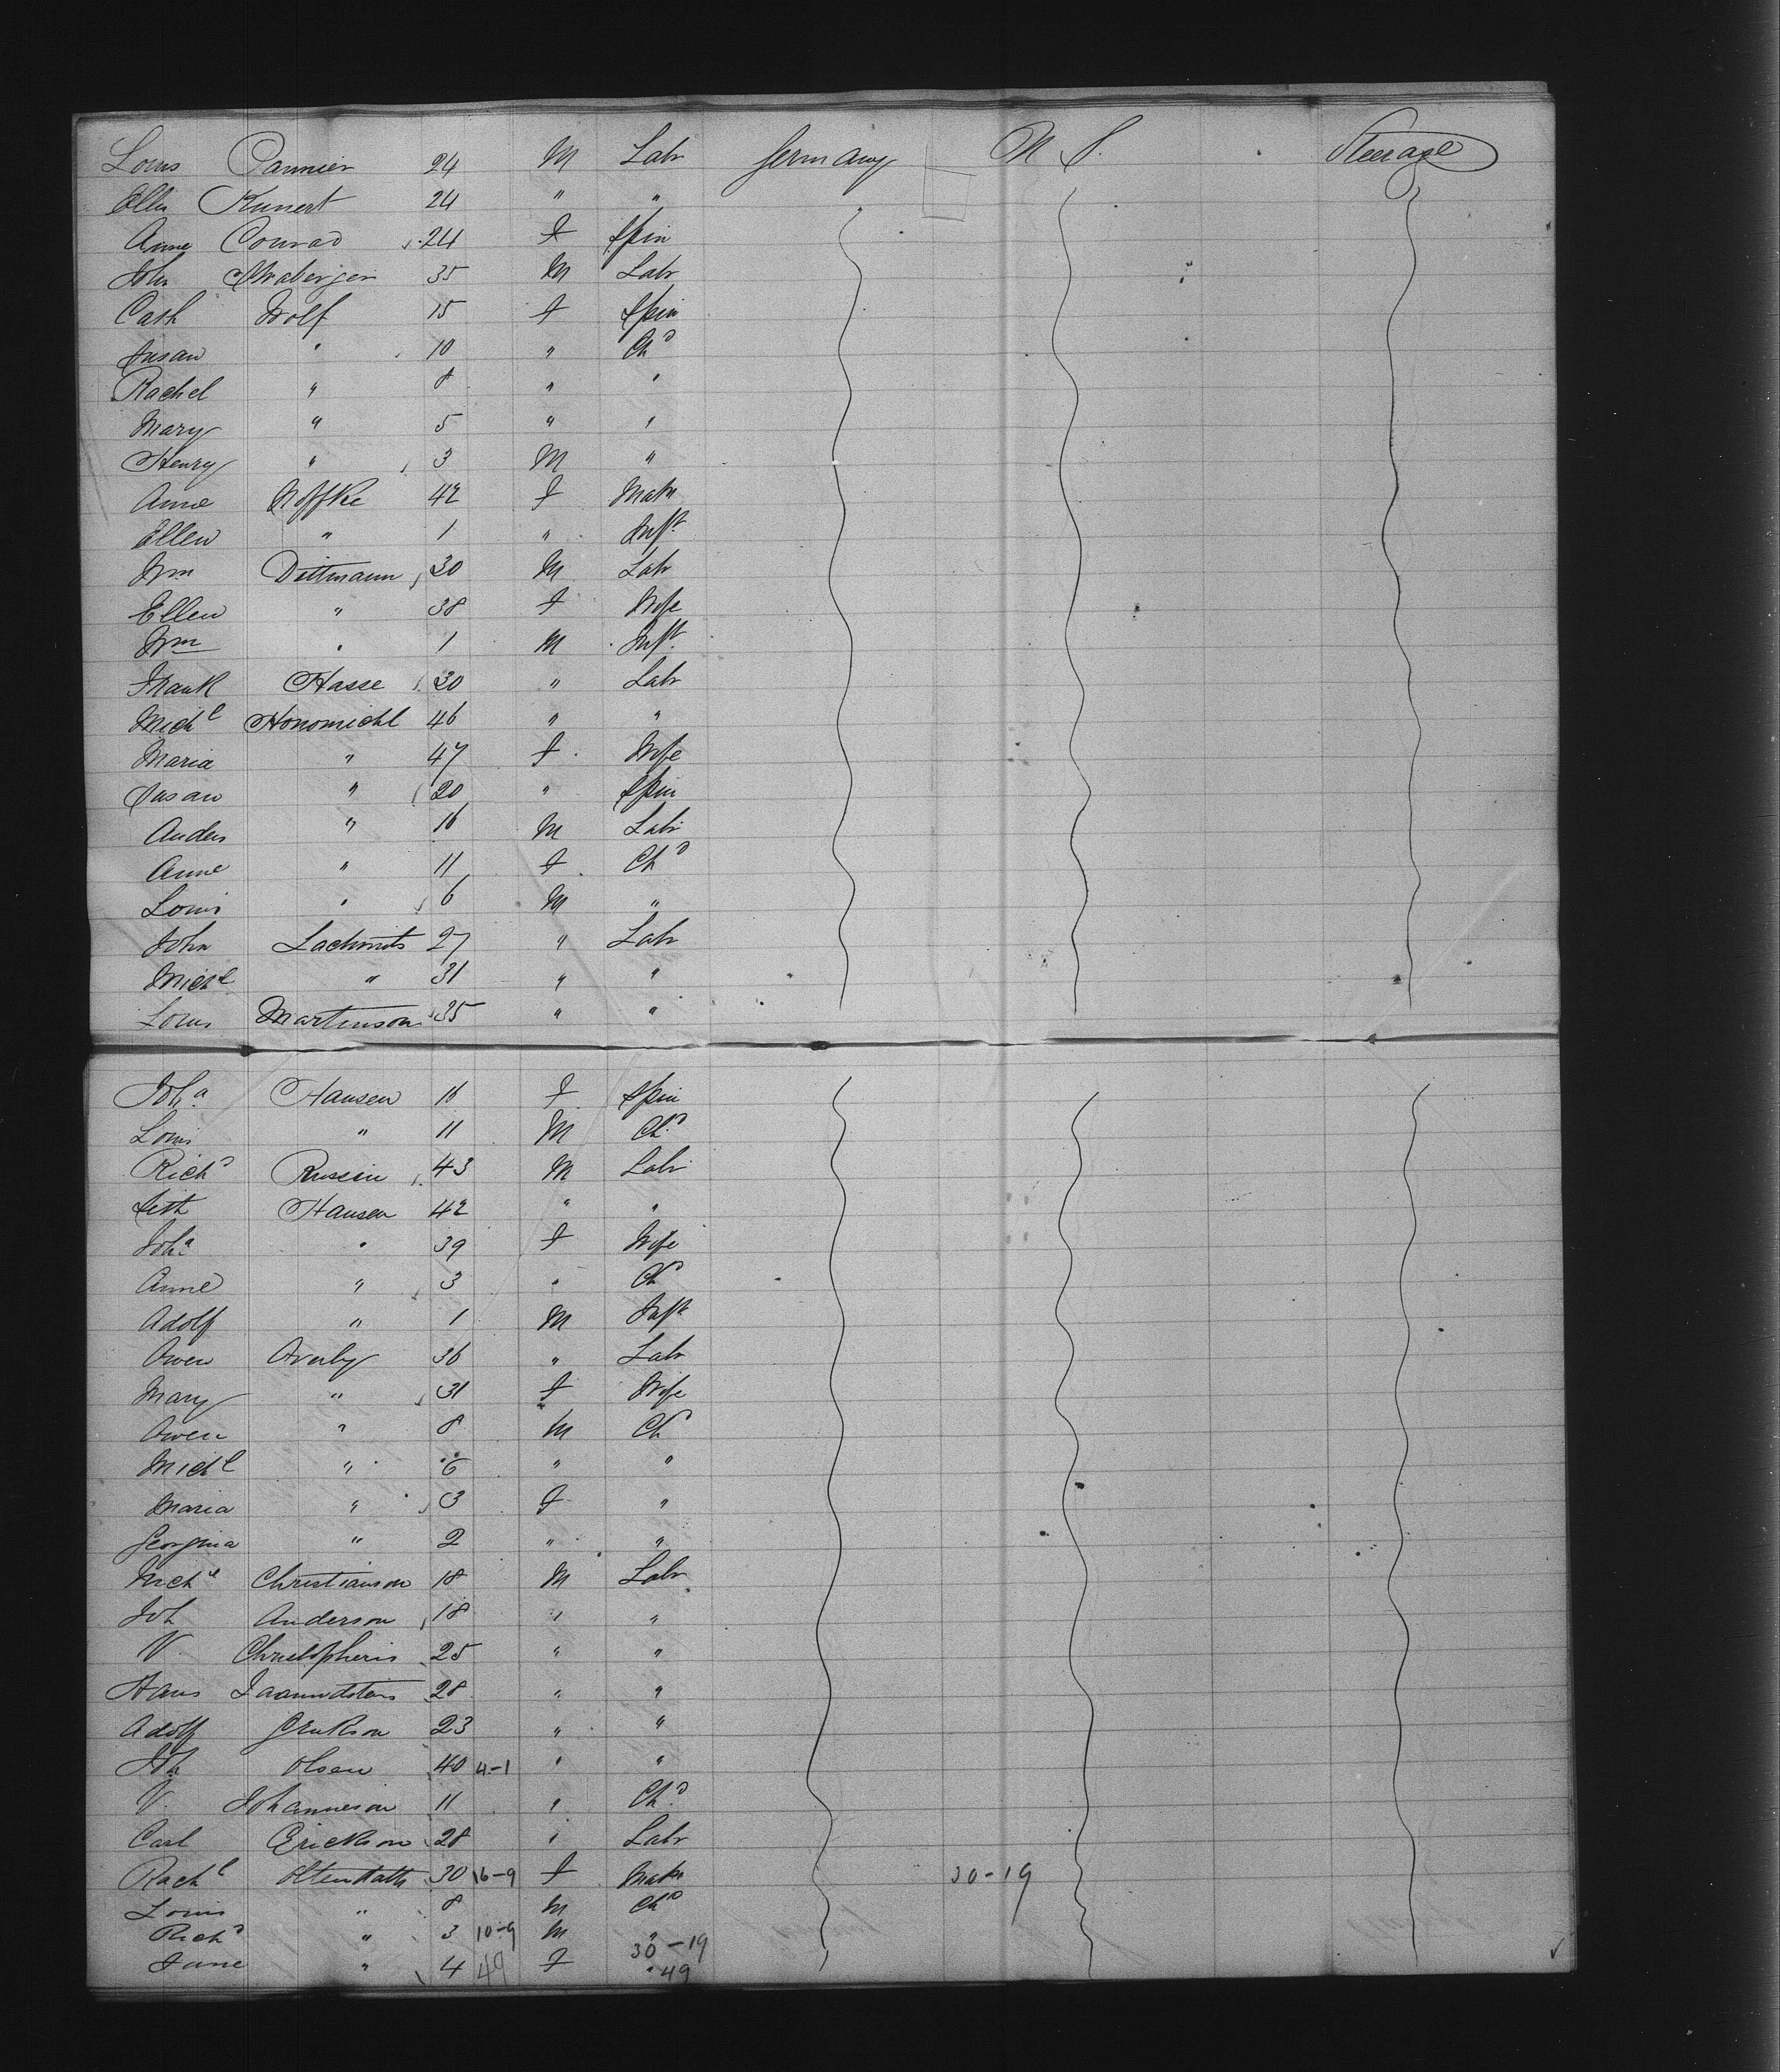 Louis Pannier 24 M Labr Germany U S. Steerage
Ellis Kunert 24 " "
Anne Conrad 24 F Spin
John Straberger 35 M Labr
Cath Wolf 15 F Spin
Susan " 10 " Chd
Rachel " 8 " "
Mary " 5 " "
Henry " 3 M "
Anne Noffke 42 F Matn
Ellen " 1 " Inft
Wm Dittmann 30 M Labr
Ellen " 38 F Wife
Wm " 1 M Inft
Frank Hasse 30 " Labr
Michl Honomichl 46 " "
Maria " 47 F Wife
Susan " 20 " Spin
Anders " 16 M Labr
Anne " 11 F Chd
Louis " 6 M "
John Lachmts 27 " Labr
Michl " 31 " "
Louis Martinson 35 " "
Joha Hansen 16 F Spin
Louis " 11 M Chd
Richd 43 M Labr
Seth Hansen 42 " "
Joha " 39 F Wife
Anne " 3 " Chd
Adolf " 1 M Inft
Owen Overby 36 " Labr
Mary " 31 F Wife
Owen " 8 M Chd
Michl " 6 " "
Maria " 3 F "
Georgina " 2 " "
Michl Christianson 18 M Labr
Joh Anderson 18 " "
V. 25 " "
Hans 28 " "
Adolf 23 " "
Joh Olsen 40 4-1 " "
V. Johanneson 11 " Chd
Carl Erickson 28 " Labr
Rachl 30 16-9 F Matn 30-19
Louis " 8 M Chd
Richd " 3 10-9 M "
30-19
Jane " 4 49 F " 49